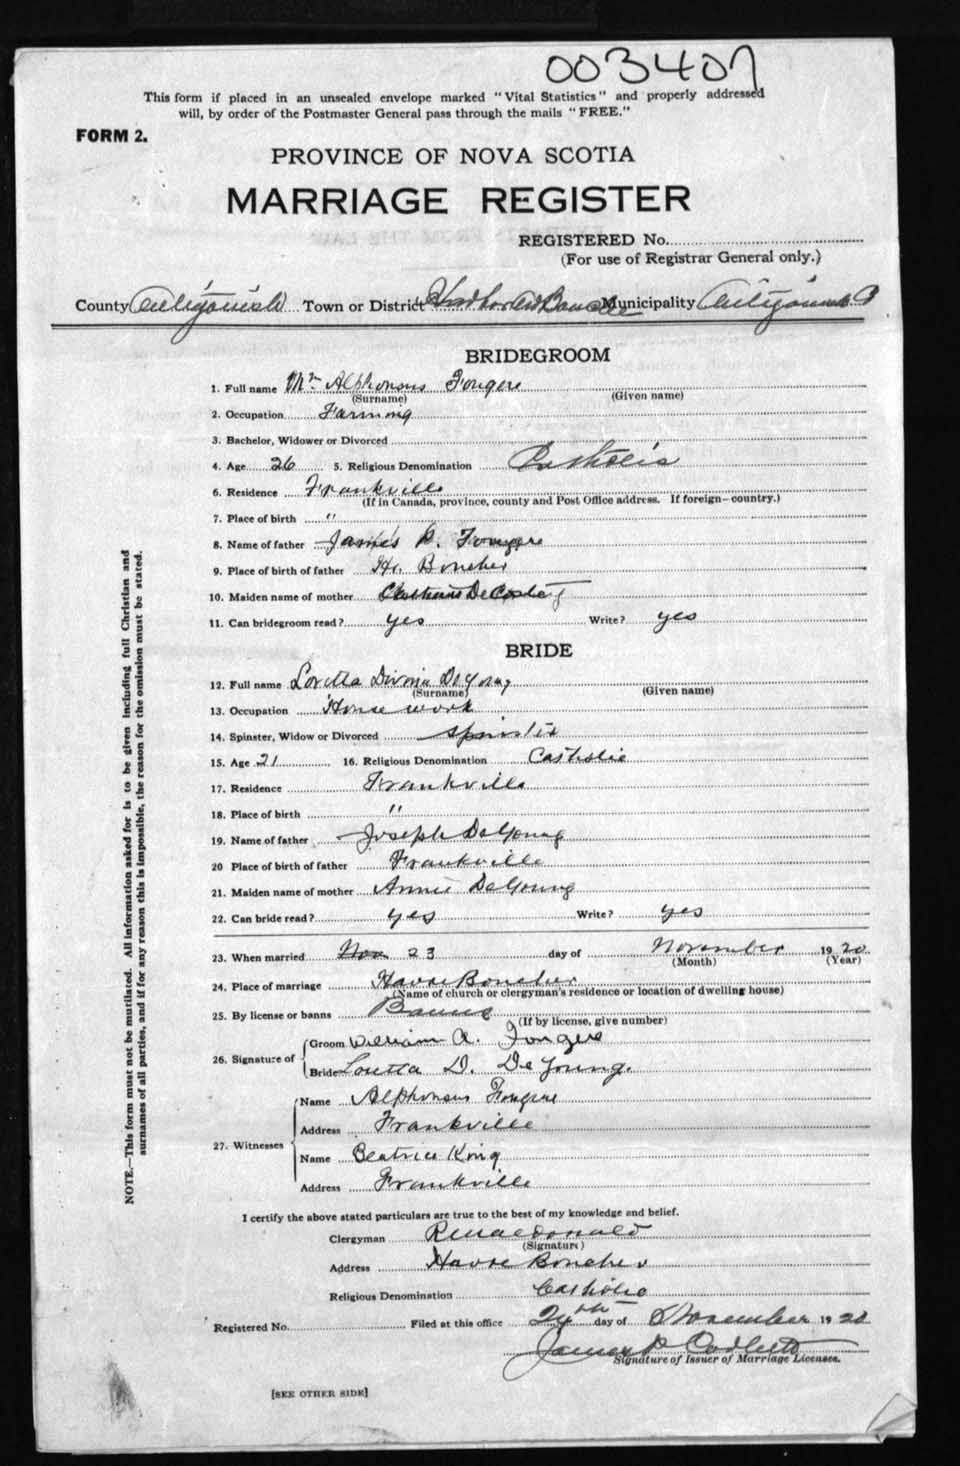 003407
This form if placed in an unsealed envelope marked "Vital Statistics" and properly addressed
will, by order of the Postmaster General pass through the mails "FREE."
FORM 2.
PROVINCE OF NOVA SCOTIA
MARRIAGE REGISTER
REGISTERED No.
(For use of Registrar General only.)
County Antigonish Town or District Municipality Antigonish
BRIDEGROOM
1. Full name Mr Alphonsus Fougere
(Surname) (Given name)
2. Occupation Farming
3. Bachelor, Widower or Divorced
4. Age 26 5. Religious Denomination Catholic
6. Residence Frankville
(If in Canada, province, county and Post Office address. If foreign—country.)
7. Place of birth "
8. Name of father James P. Fougere
9. Place of birth of father Hr. Boucher
10. Maiden name of mother DeCoste
11. Can bridegroom read? yes Write? yes
BRIDE
12. Full name Loretta Divinie DeYoung
(Surname) (Given name)
13. Occupation House work
14. Spinster, Widow or Divorced spinster
15. Age 21 16. Religious Denomination Catholic
17. Residence Frankville
18. Place of birth "
19. Name of father Joseph DeYoung
20 Place of birth of father Frankville
21. Maiden name of mother Annie DeYoung
22. Can bride read? yes Write? yes
23. When married Nov 23 day of November 1920
(Month) (Year)
24. Place of marriage Havre Boucher
(Name of church or clergyman's residence or location of dwelling house)
25. By license or banns Banns
(If by license, give number)
26. Signature of Groom William A. Fougere
Bride Loretta D. DeYoung.
27. Witnesses
Name Alphonsus Fougere
Address Frankville
Name Beatrice King
Address Frankville
I certify the above stated particulars are true to the best of my knowledge and belief.
Clergyman R Macdonald
(Signature)
Address Havre Boucher
Religious Denomination Catholic
Registered No. Filed at this office 24th day of November 1920
James P Corbett
Signature of Issuer of Marriage Licenses.
[SEE OTHER SIDE]
NOTE.—This form must not be mutilated. All information asked for is to be given including full Christian and
surnames of all parties, and if for any reason this is impossible, the reason for the omission must be stated.